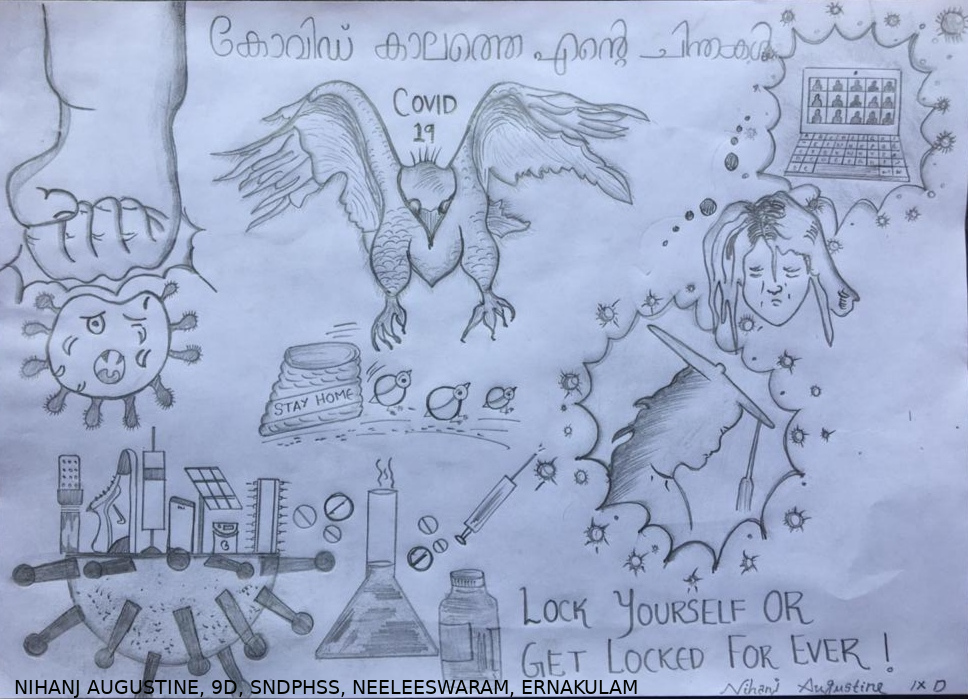 കോവിഡ് കാലത്തെ എന്റെ ചിന്തകൾ
COVID
19
STAY HOME
LOCK YOURSELF OR
GET LOCKED FOR EVER!
Nihanj Augustine IX D
NIHANJ AUGUSTINE, 9D, SNDPHSS, NEELEESWARAM, ERNAKULAM